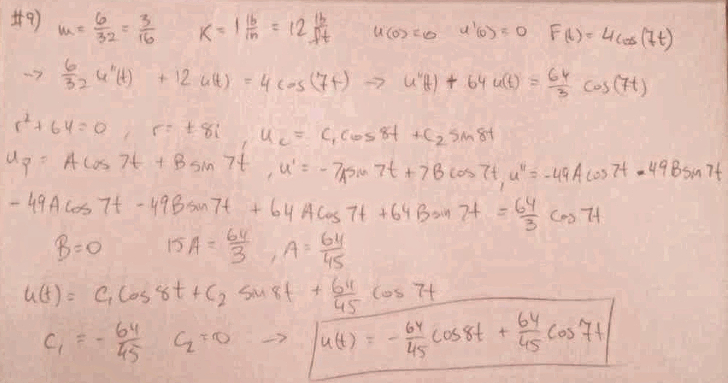 #9) m = 6/32 = 3/16 K = 1 lb/in = 12 lb/ft u(0)=0 u'(0)=0 F(t)= 4cos(7t)
→ 6/32 u''(t) + 12 u(t) = 4 cos(7t) → u''(t) + 64 u(t) = 64/3 cos(7t)
r²+64=0 , r= ±8i , u_c = C₁cos8t + C₂ sin8t
u_p = A cos 7t + B sin 7t , u' = -7A sin 7t + 7B cos 7t, u'' = -49A cos7t - 49B sin7t
-49A cos 7t - 49B sin 7t + 64 A cos 7t + 64 B sin 7t = 64/3 cos 7t
B=0 15A = 64/3 , A = 64/45
u(t) = C₁ cos 8t + C₂ sin 8t + 64/45 cos 7t
C₁ = - 64/45 C₂ = 0 → u(t) = - 64/45 cos8t + 64/45 cos7t